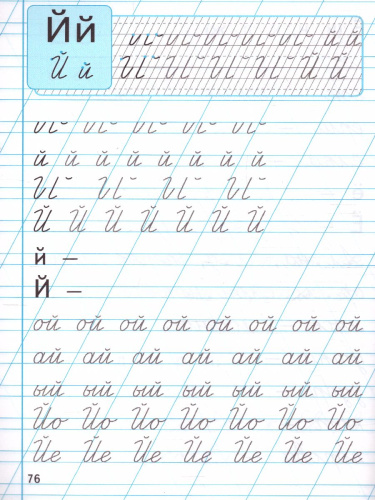 Йй
Й й
й й
Й Й
й й й й й й й й
Й Й Й Й Й Й Й
й –
Й –
ой ой ой ой ой ой ой ой
ай ай ай ай ай ай ай
ый ый ый ый ый ый ый
Йо Йо Йо Йо Йо Йо Йо
Йе Йе Йе Йе Йе Йе Йе
76